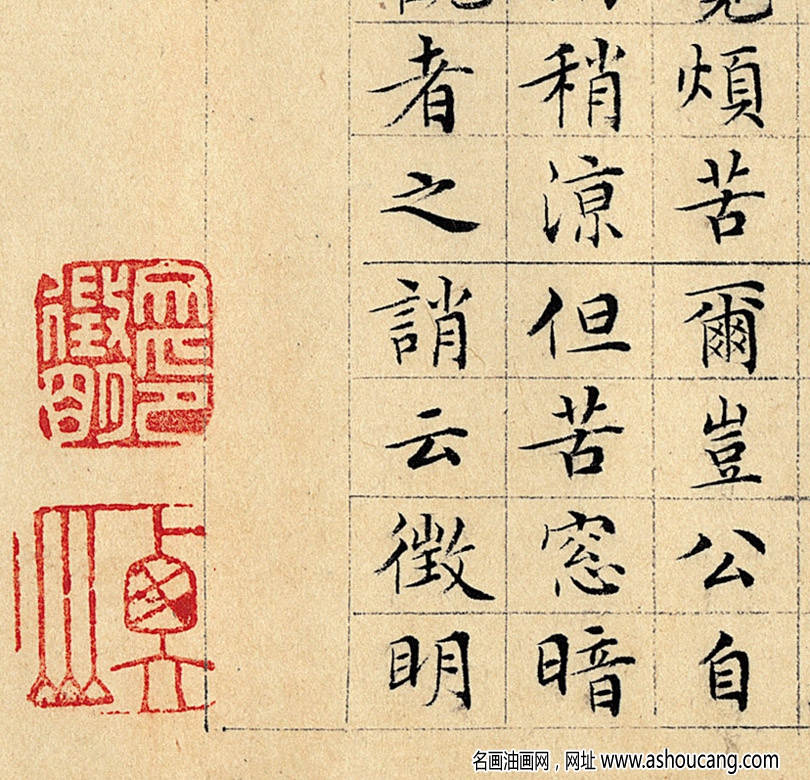 煩苦爾豈公自
稍涼但苦窓暗
者之誚云徵明
徵明
名画油画网，网址 www.ashoucang.com